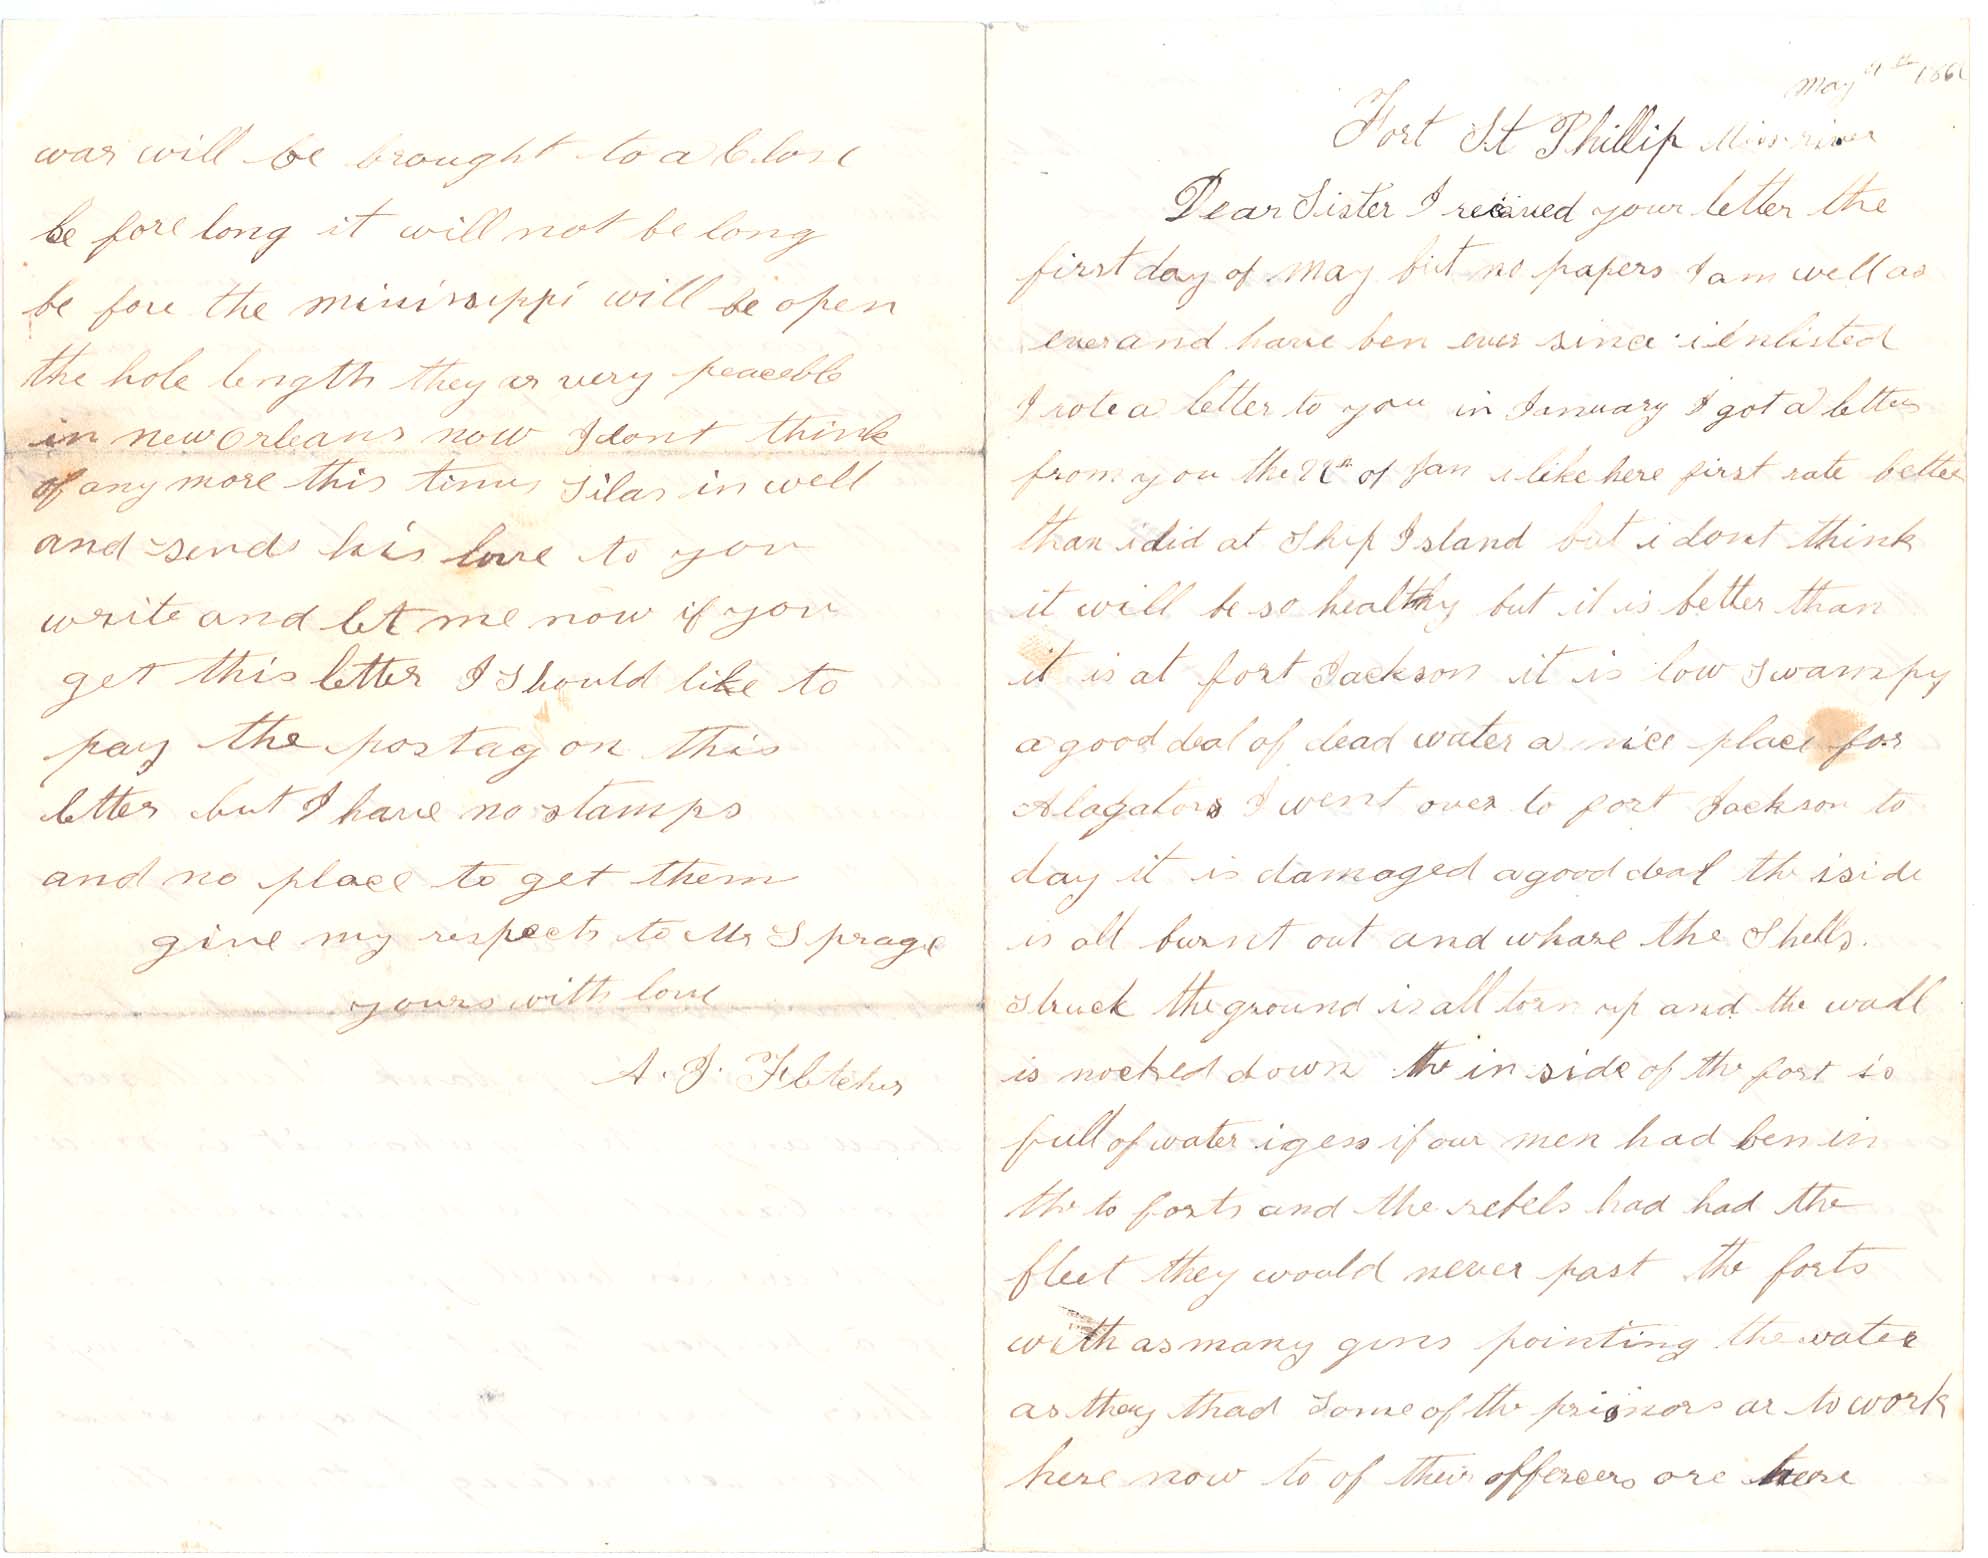 May 1862
Fort St Phillip Miss river
Dear Sister I recieved your letter the
first day of May but no papers I am well as
ever and have ben ever since i enlisted
I rote a letter to you in January I got a letter
from you the of Jan i like here first rate better
than i did at Ship Island but i dont think
it will be so healthy but it is better than
it is at fort Jackson it is low Swampy
a good deal of dead water a nice place for
Alagators I went over to fort Jackson to
day it is damaged a good deal the iside
is all burnt out and whare the Shells.
Struck the ground is all torn up and the wall
is nocked down the in side of the fort is
full of water i gess if our men had ben in
the to forts and the rebels had had the
fleet they would never past the forts
with as many guns pointing the water
as they thad Some of the prisinors ar to work
here now to of their offercers are here
war will be brought to a Close
be fore long it will not be long
be fore the missisippi will be open
the hole length they ar very peaceble
in new Orleans now I dont think
of any more this time Silas is well
and sends his love to you
write and let me now if you
get this letter I Should like to
pay the postag on this
letter but I have no stamps
and no place to get them
give my respects to Mr Sprage
yours with love
A. J. Fletcher